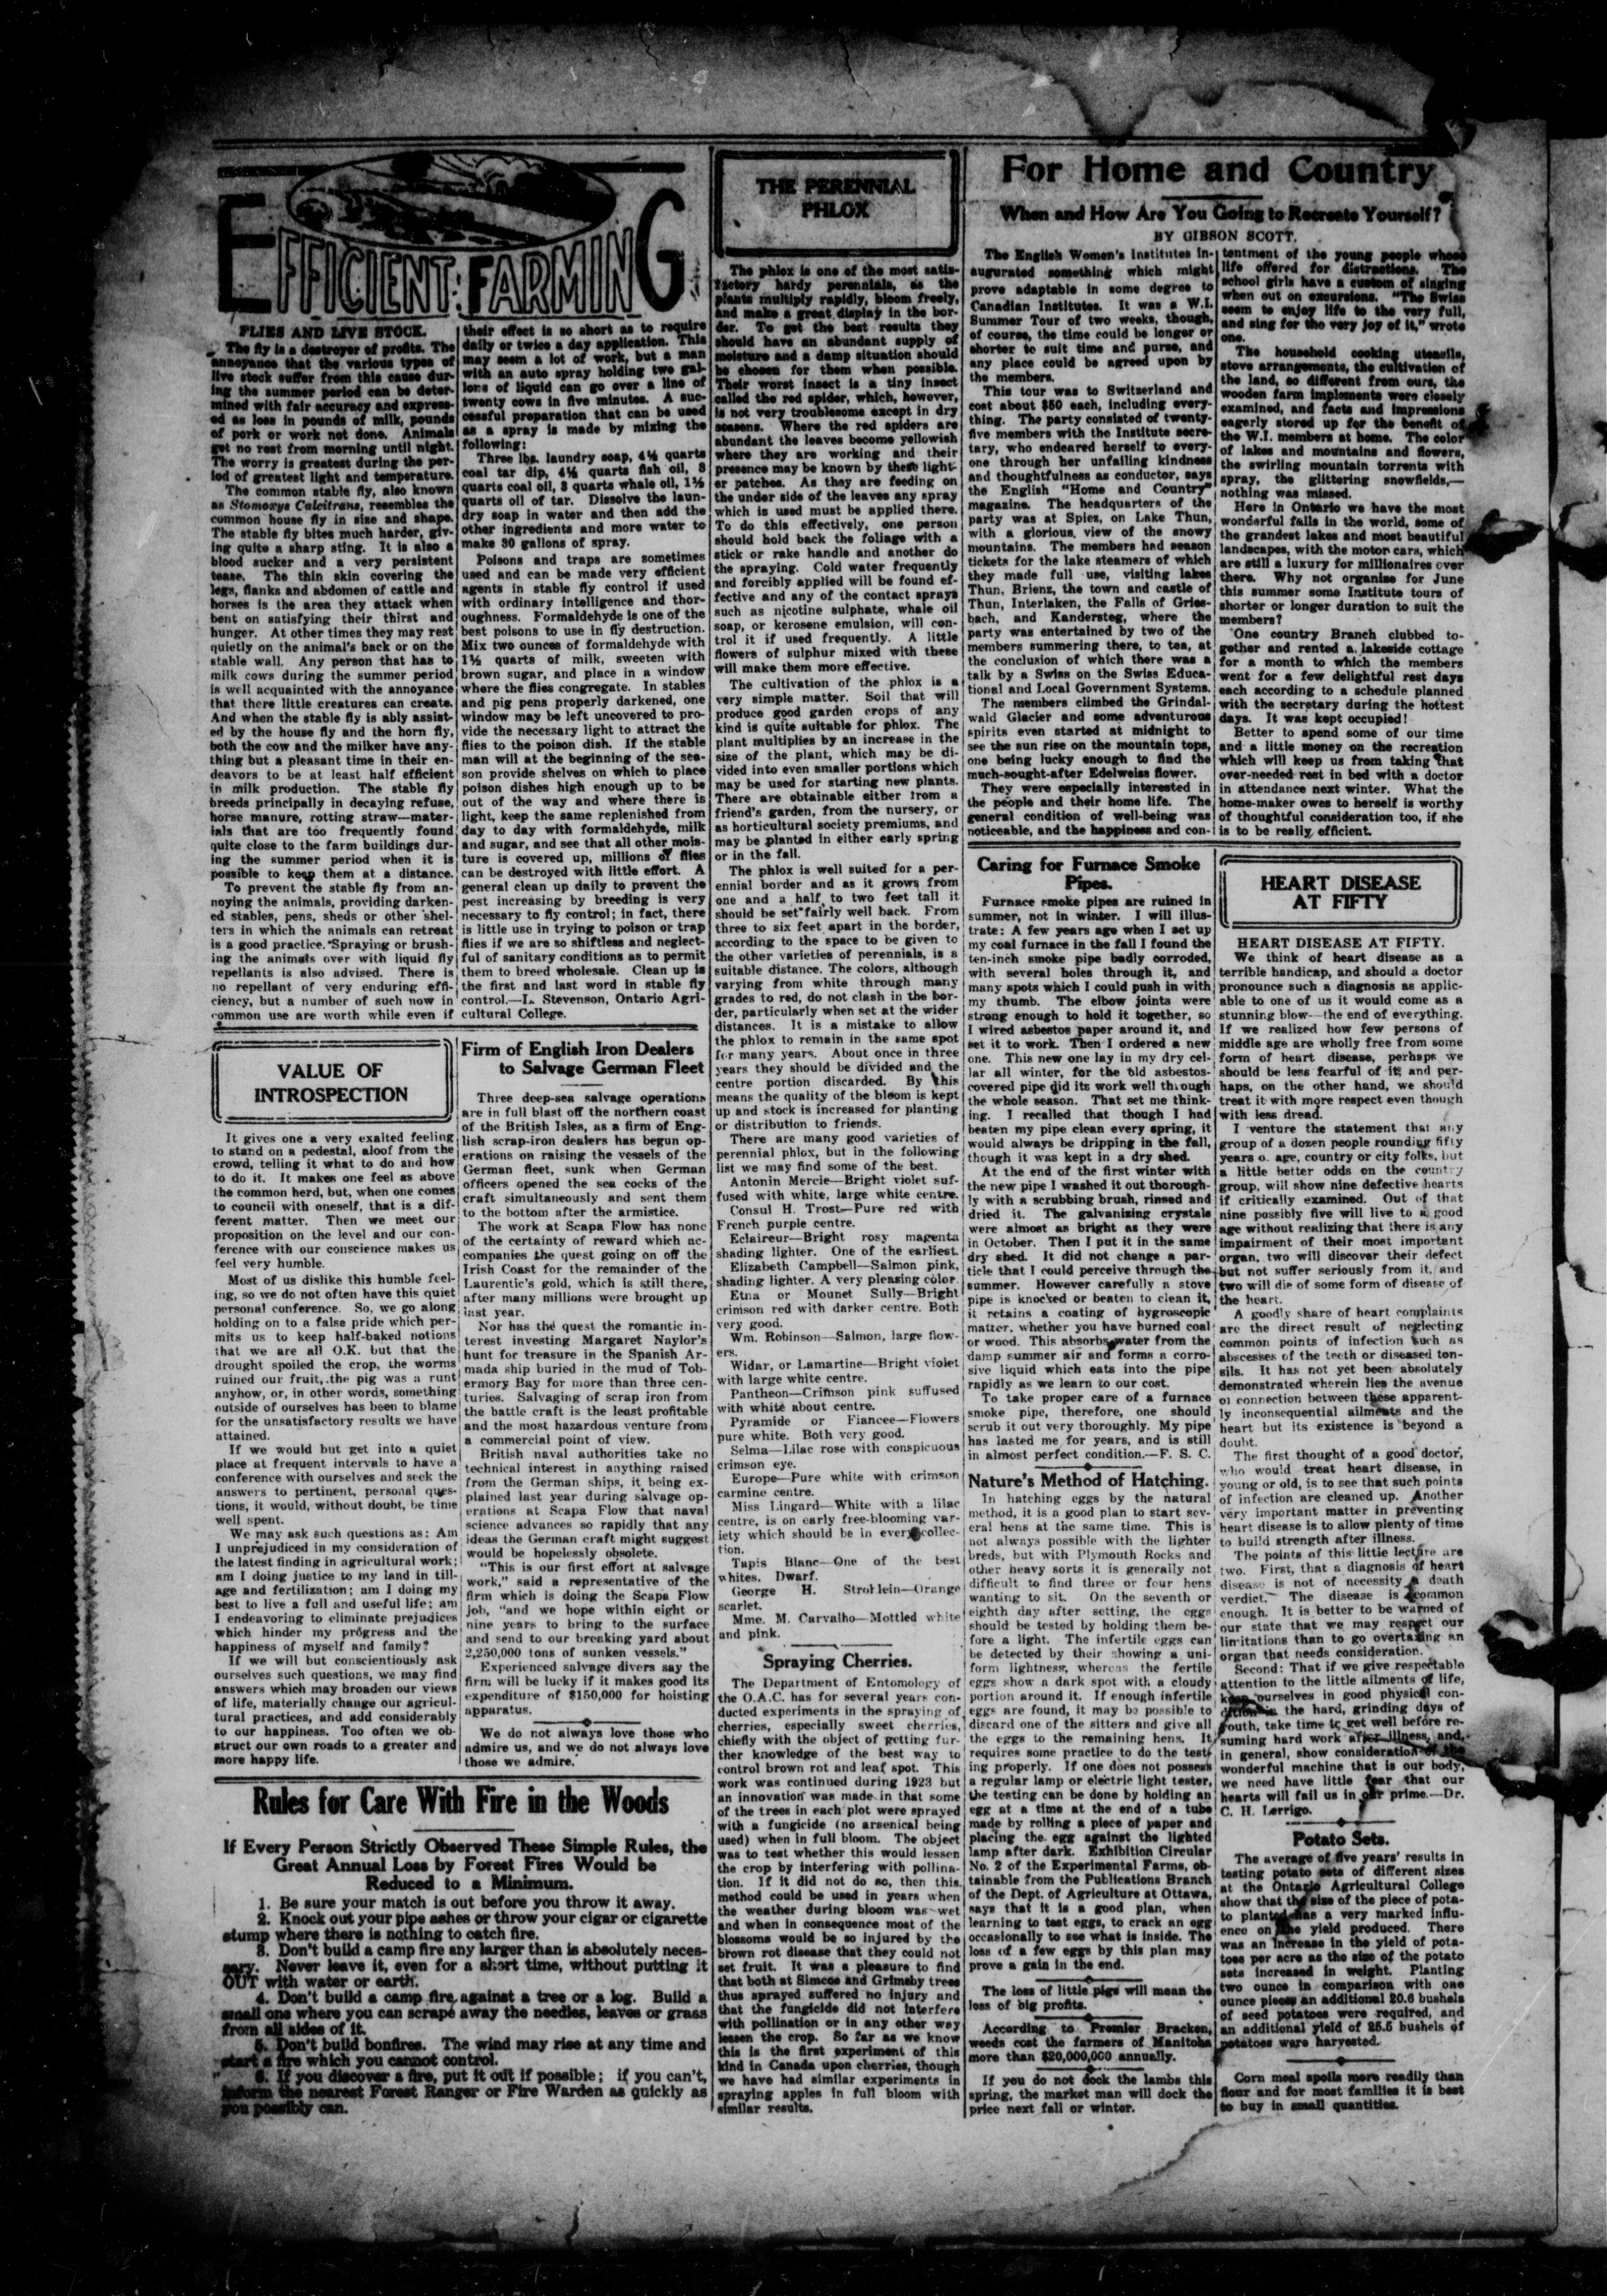 EFFICIENT FARMING
FLIES AND LIVE STOCK.
The fly is a destroyer of profits. The
annoyance that the various types of
live stock suffer from this cause dur-
ing the summer period can be deter-
mined with fair accuracy and express-
ed as loss in pounds of milk, pounds
of pork or work not done. Animals
get no rest from morning until night.
The worry is greatest during the per-
iod of greatest light and temperature.
The common stable fly, also known
as Stomoxys Calcitrans, resembles the
common house fly in size and shape.
The stable fly bites much harder, giv-
ing quite a sharp sting. It is also a
blood sucker and a very persistent
tease. The thin skin covering the
legs, flanks and abdomen of cattle and
horses is the area they attack when
bent on satisfying their thirst and
hunger. At other times they may rest
quietly on the animal's back or on the
stable wall. Any person that has to
milk cows during the summer period
is well acquainted with the annoyance
that there little creatures can create.
And when the stable fly is ably assist-
ed by the house fly and the horn fly,
both the cow and the milker have any-
thing but a pleasant time in their en-
deavors to be at least half efficient
in milk production. The stable fly
breeds principally in decaying refuse,
horse manure, rotting straw—mater-
ials that are too frequently found
quite close to the farm buildings dur-
ing the summer period when it is
possible to keep them at a distance.
To prevent the stable fly from an-
noying the animals, providing darken-
ed stables, pens, sheds or other shel-
ters in which the animals can retreat
is a good practice. Spraying or brush-
ing the animals over with liquid fly
repellants is also advised. There is
no repellant of very enduring effi-
ciency, but a number of such now in
common use are worth while even if
their effect is so short as to require
daily or twice a day application. This
may seem a lot of work, but a man
with an auto spray holding two gal-
lons of liquid can go over a line of
twenty cows in five minutes. A suc-
cessful preparation that can be used
as a spray is made by mixing the
following:
Three lbs. laundry soap, 4½ quarts
coal tar dip, 4½ quarts fish oil, 3
quarts coal oil, 3 quarts whale oil, 1½
quarts oil of tar. Dissolve the laun-
dry soap in water and then add the
other ingredients and more water to
make 30 gallons of spray.
Poisons and traps are sometimes
used and can be made very efficient
agents in stable fly control if used
with ordinary intelligence and thor-
oughness. Formaldehyde is one of the
best poisons to use in fly destruction.
Mix two ounces of formaldehyde with
1½ quarts of milk, sweeten with
brown sugar, and place in a window
where the flies congregate. In stables
and pig pens properly darkened, one
window may be left uncovered to pro-
vide the necessary light to attract the
flies to the poison dish. If the stable
man will at the beginning of the sea-
son provide shelves on which to place
poison dishes high enough up to be
out of the way and where there is
light, keep the same replenished from
day to day with formaldehyde, milk
and sugar, and see that all other mois-
ture is covered up, millions of flies
can be destroyed with little effort. A
general clean up daily to prevent the
pest increasing by breeding is very
necessary to fly control; in fact, there
is little use in trying to poison or trap
flies if we are so shiftless and neglect-
ful of sanitary conditions as to permit
them to breed wholesale. Clean up is
the first and last word in stable fly
control.—L. Stevenson, Ontario Agri-
cultural College.
VALUE OF
INTROSPECTION
It gives one a very exalted feeling
to stand on a pedestal, aloof from the
crowd, telling it what to do and how
to do it. It makes one feel as above
the common herd, but, when one comes
to council with oneself, that is a dif-
ferent matter. Then we meet our
proposition on the level and our con-
ference with our conscience makes us
feel very humble.
Most of us dislike this humble feel-
ing, so we do not often have this quiet
personal conference. So, we go along
holding on to a false pride which per-
mits us to keep half-baked notions
that we are all O.K. but that the
drought spoiled the crop, the worms
ruined our fruit, the pig was a runt
anyhow, or, in other words, something
outside of ourselves has been to blame
for the unsatisfactory results we have
attained.
If we would but get into a quiet
place at frequent intervals to have a
conference with ourselves and seek the
answers to pertinent, personal ques-
tions, it would, without doubt, be time
well spent.
We may ask such questions as: Am
I unprejudiced in my consideration of
the latest finding in agricultural work;
am I doing justice to my land in till-
age and fertilization; am I doing my
best to live a full and useful life; am
I endeavoring to eliminate prejudices
which hinder my progress and the
happiness of myself and family?
If we will but conscientiously ask
ourselves such questions, we may find
answers which may broaden our views
of life, materially change our agricul-
tural practices, and add considerably
to our happiness. Too often we ob-
struct our own roads to a greater and
more happy life.
Firm of English Iron Dealers
to Salvage German Fleet
Three deep-sea salvage operations
are in full blast off the northern coast
of the British Isles, as a firm of Eng-
lish scrap-iron dealers has begun op-
erations on raising the vessels of the
German fleet, sunk when German
officers opened the sea cocks of the
craft simultaneously and sent them
to the bottom after the armistice.
The work at Scapa Flow has none
of the certainty of reward which ac-
companies the quest going on off the
Irish Coast for the remainder of the
Laurentic's gold, which is still there,
after many millions were brought up
last year.
Nor has the quest the romantic in-
terest investing Margaret Naylor's
hunt for treasure in the Spanish Ar-
mada ship buried in the mud of Tob-
ermory Bay for more than three cen-
turies. Salvaging of scrap iron from
the battle craft is the least profitable
and the most hazardous venture from
a commercial point of view.
British naval authorities take no
technical interest in anything raised
from the German ships, it being ex-
plained last year during salvage op-
erations at Scapa Flow that naval
science advances so rapidly that any
ideas the German craft might suggest
would be hopelessly obsolete.
"This is our first effort at salvage
work," said a representative of the
firm which is doing the Scapa Flow
job, "and we hope within eight or
nine years to bring to the surface
and send to our breaking yard about
2,250,000 tons of sunken vessels."
Experienced salvage divers say the
firm will be lucky if it makes good its
expenditure of $150,000 for hoisting
apparatus.
We do not always love those who
admire us, and we do not always love
those we admire.
Rules for Care With Fire in the Woods
If Every Person Strictly Observed These Simple Rules, the
Great Annual Loss by Forest Fires Would be
Reduced to a Minimum.
1. Be sure your match is out before you throw it away.
2. Knock out your pipe ashes or throw your cigar or cigarette
stump where there is nothing to catch fire.
3. Don't build a camp fire any larger than is absolutely neces-
sary. Never leave it, even for a short time, without putting it
OUT with water or earth.
4. Don't build a camp fire against a tree or a log. Build a
small one where you can scrape away the needles, leaves or grass
from all sides of it.
5. Don't build bonfires. The wind may rise at any time and
start a fire which you cannot control.
6. If you discover a fire, put it out if possible; if you can't,
inform the nearest Forest Ranger or Fire Warden as quickly as
you possibly can.
THE PERENNIAL
PHLOX
The phlox is one of the most satis-
factory hardy perennials, as the
plants multiply rapidly, bloom freely,
and make a great display in the bor-
der. To get the best results they
should have an abundant supply of
moisture and a damp situation should
be chosen for them when possible.
Their worst insect is a tiny insect
called the red spider, which, however,
is not very troublesome except in dry
seasons. Where the red spiders are
abundant the leaves become yellowish
where they are working and their
presence may be known by these light-
er patches. As they are feeding on
the under side of the leaves any spray
which is used must be applied there.
To do this effectively, one person
should hold back the foliage with a
stick or rake handle and another do
the spraying. Cold water frequently
and forcibly applied will be found ef-
fective and any of the contact sprays
such as nicotine sulphate, whale oil
soap, or kerosene emulsion, will con-
trol it if used frequently. A little
flowers of sulphur mixed with these
will make them more effective.
The cultivation of the phlox is a
very simple matter. Soil that will
produce good garden crops of any
kind is quite suitable for phlox. The
plant multiplies by an increase in the
size of the plant, which may be di-
vided into even smaller portions which
may be used for starting new plants.
There are obtainable either from a
friend's garden, from the nursery, or
as horticultural society premiums, and
may be planted in either early spring
or in the fall.
The phlox is well suited for a per-
ennial border and as it grows from
one and a half to two feet tall it
should be set fairly well back. From
three to six feet apart in the border,
according to the space to be given to
the other varieties of perennials, is a
suitable distance. The colors, although
varying from white through many
grades to red, do not clash in the bor-
der, particularly when set at the wider
distances. It is a mistake to allow
the phlox to remain in the same spot
for many years. About once in three
years they should be divided and the
centre portion discarded. By this
means the quality of the bloom is kept
up and stock is increased for planting
or distribution to friends.
There are many good varieties of
perennial phlox, but in the following
list we may find some of the best.
Antonin Mercie—Bright violet suf-
fused with white, large white centre.
Consul H. Trost—Pure red with
French purple centre.
Eclaireur—Bright rosy magenta
shading lighter. One of the earliest.
Elizabeth Campbell—Salmon pink,
shading lighter. A very pleasing color.
Etna or Mounet Sully—Bright
crimson red with darker centre. Both
very good.
Wm. Robinson—Salmon, large flow-
ers.
Widar, or Lamartine—Bright violet
with large white centre.
Pantheon—Crimson pink suffused
with white about centre.
Pyramide or Fiancee—Flowers
pure white. Both very good.
Selma—Lilac rose with conspicuous
crimson eye.
Europe—Pure white with crimson
carmine centre.
Miss Lingard—White with a lilac
centre, is on early free-blooming var-
iety which should be in every collec-
tion.
Tapis Blanc—One of the best
whites. Dwarf.
George H. Strohlein—Orange
scarlet.
Mme. M. Carvalho—Mottled white
and pink.
Spraying Cherries.
The Department of Entomology of
the O.A.C. has for several years con-
ducted experiments in the spraying of
cherries, especially sweet cherries,
chiefly with the object of getting fur-
ther knowledge of the best way to
control brown rot and leaf spot. This
work was continued during 1923 but
an innovation was made in that some
of the trees in each plot were sprayed
with a fungicide (no arsenical being
used) when in full bloom. The object
was to test whether this would lessen
the crop by interfering with pollina-
tion. If it did not do so, then this
method could be used in years when
the weather during bloom was wet
and when in consequence most of the
blossoms would be so injured by the
brown rot disease that they could not
set fruit. It was a pleasure to find
that both at Simcoe and Grimsby trees
thus sprayed suffered no injury and
that the fungicide did not interfere
with pollination or in any other way
lessen the crop. So far as we know
this is the first experiment of this
kind in Canada upon cherries, though
we have had similar experiments in
spraying apples in full bloom with
similar results.
For Home and Country
When and How Are You Going to Recreate Yourself?
BY GIBSON SCOTT.
The English Women's Institutes in-
augurated something which might
prove adaptable in some degree to
Canadian Institutes. It was a W.I.
Summer Tour of two weeks, though,
of course, the time could be longer or
shorter to suit time and purse, and
any place could be agreed upon by
the members.
This tour was to Switzerland and
cost about $50 each, including every-
thing. The party consisted of twenty-
five members with the Institute secre-
tary, who endeared herself to every-
one through her unfailing kindness
and thoughtfulness as conductor, says
the English "Home and Country"
magazine. The headquarters of the
party was at Spiez, on Lake Thun,
with a glorious view of the snowy
mountains. The members had season
tickets for the lake steamers of which
they made full use, visiting lakes
Thun, Brienz, the town and castle of
Thun, Interlaken, the Falls of Gries-
bach, and Kandersteg, where the
party was entertained by two of the
members summering there, to tea, at
the conclusion of which there was a
talk by a Swiss on the Swiss Educa-
tional and Local Government Systems.
The members climbed the Grindal-
wald Glacier and some adventurous
spirits even started at midnight to
see the sun rise on the mountain tops,
one being lucky enough to find the
much-sought-after Edelweiss flower.
They were especially interested in
the people and their home life. The
general condition of well-being was
noticeable, and the happiness and con-
tentment of the young people whose
life offered for distractions. The
school girls have a custom of singing
when out on excursions. "The Swiss
seem to enjoy life to the very full,
and sing for the very joy of it," wrote
one.
The household cooking utensils,
stove arrangements, the cultivation of
the land, so different from ours, the
wooden farm implements were closely
examined, and facts and impressions
eagerly stored up for the benefit of
the W.I. members at home. The color
of lakes and mountains and flowers,
the swirling mountain torrents with
spray, the glittering snowfields,—
nothing was missed.
Here in Ontario we have the most
wonderful falls in the world, some of
the grandest lakes and most beautiful
landscapes, with the motor cars, which
are still a luxury for millionaires over
there. Why not organize for June
this summer some Institute tours of
shorter or longer duration to suit the
members?
One country Branch clubbed to-
gether and rented a lakeside cottage
for a month to which the members
went for a few delightful rest days
each according to a schedule planned
with the secretary during the hottest
days. It was kept occupied!
Better to spend some of our time
and a little money on the recreation
which will keep us from taking that
over-needed rest in bed with a doctor
in attendance next winter. What the
home-maker owes to herself is worthy
of thoughtful consideration too, if she
is to be really efficient.
Caring for Furnace Smoke
Pipes.
Furnace smoke pipes are ruined in
summer, not in winter. I will illus-
trate: A few years ago when I set up
my coal furnace in the fall I found the
ten-inch smoke pipe badly corroded,
with several holes through it, and
many spots which I could push in with
my thumb. The elbow joints were
strong enough to hold it together, so
I wired asbestos paper around it, and
set it to work. Then I ordered a new
one. This new one lay in my dry cel-
lar all winter, for the old asbestos-
covered pipe did its work well through
the whole season. That set me think-
ing. I recalled that though I had
beaten my pipe clean every spring, it
would always be dripping in the fall,
though it was kept in a dry shed.
At the end of the first winter with
the new pipe I washed it out thorough-
ly with a scrubbing brush, rinsed and
dried it. The galvanizing crystals
were almost as bright as they were
in October. Then I put it in the same
dry shed. It did not change a par-
ticle that I could perceive through the
summer. However carefully a stove
pipe is knocked or beaten to clean it,
it retains a coating of hygroscopic
matter, whether you have burned coal
or wood. This absorbs water from the
damp summer air and forms a corro-
sive liquid which eats into the pipe
rapidly as we learn to our cost.
To take proper care of a furnace
smoke pipe, therefore, one should
scrub it out very thoroughly. My pipe
has lasted me for years, and is still
in almost perfect condition.—F. S. C.
Nature's Method of Hatching.
In hatching eggs by the natural
method, it is a good plan to start sev-
eral hens at the same time. This is
not always possible with the lighter
breds, but with Plymouth Rocks and
other heavy sorts it is generally not
difficult to find three or four hens
wanting to sit. On the seventh or
eighth day after setting, the eggs
should be tested by holding them be-
fore a light. The infertile eggs can
be detected by their showing a uni-
form lightness, whereas the fertile
eggs show a dark spot with a cloudy
portion around it. If enough infertile
eggs are found, it may be possible to
discard one of the sitters and give all
the eggs to the remaining hens. It
requires some practice to do the test-
ing properly. If one does not possess
a regular lamp or electric light tester,
the testing can be done by holding an
egg at a time at the end of a tube
made by rolling a piece of paper and
placing the egg against the lighted
lamp after dark. Exhibition Circular
No. 2 of the Experimental Farms, ob-
tainable from the Publications Branch
of the Dept. of Agriculture at Ottawa,
says that it is a good plan, when
learning to test eggs, to crack an egg
occasionally to see what is inside. The
loss of a few eggs by this plan may
prove a gain in the end.
The loss of little pigs will mean the
loss of big profits.
According to Premier Bracken,
weeds cost the farmers of Manitoba
more than $20,000,000 annually.
If you do not dock the lambs this
spring, the market man will dock the
price next fall or winter.
HEART DISEASE
AT FIFTY
HEART DISEASE AT FIFTY.
We think of heart disease as a
terrible handicap, and should a doctor
pronounce such a diagnosis as applic-
able to one of us it would come as a
stunning blow—the end of everything.
If we realized how few persons of
middle age are wholly free from some
form of heart disease, perhaps we
should be less fearful of it; and per-
haps, on the other hand, we should
treat it with more respect even though
with less dread.
I venture the statement that any
group of a dozen people rounding fifty
years o. age, country or city folks, but
a little better odds on the country
group, will show nine defective hearts
if critically examined. Out of that
nine possibly five will live to a good
age without realizing that there is any
impairment of their most important
organ, two will discover their defect
but not suffer seriously from it, and
two will die of some form of disease of
the heart.
A goodly share of heart complaints
are the direct result of neglecting
common points of infection such as
abscesses of the teeth or diseased ton-
sils. It has not yet been absolutely
demonstrated wherein lies the avenue
of connection between these apparent-
ly inconsequential ailments and the
heart but its existence is beyond a
doubt.
The first thought of a good doctor,
who would treat heart disease, in
young or old, is to see that such points
of infection are cleaned up. Another
very important matter in preventing
heart disease is to allow plenty of time
to build strength after illness.
The points of this little lecture are
two. First, that a diagnosis of heart
disease is not of necessity a death
verdict. The disease is common
enough. It is better to be warned of
our state that we may respect our
limitations than to go overtaxing an
organ that needs consideration.
Second: That if we give respectable
attention to the little ailments of life,
keep ourselves in good physical con-
dition in the hard, grinding days of
youth, take time to get well before re-
suming hard work after illness, and,
in general, show consideration of the
wonderful machine that is our body,
we need have little fear that our
hearts will fail us in our prime.—Dr.
C. H. Lerrigo.
Potato Sets.
The average of five years' results in
testing potato sets of different sizes
at the Ontario Agricultural College
show that the size of the piece of pota-
to planted has a very marked influ-
ence on the yield produced. There
was an increase in the yield of pota-
toes per acre as the size of the potato
sets increased in weight. Planting
two ounce in comparison with one
ounce pieces an additional 20.6 bushels
of seed potatoes were required, and
an additional yield of 25.5 bushels of
potatoes ware harvested.
Corn meal spoils more readily than
flour and for most families it is best
to buy in small quantities.